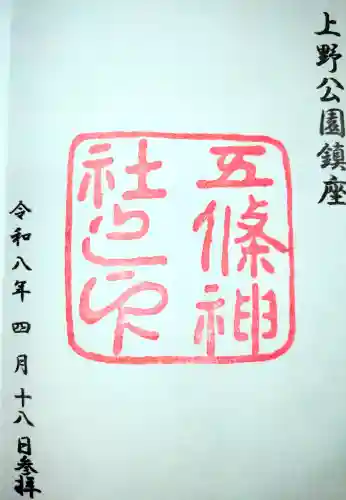 上野公園鎮座
五條神
社之印
令和八年四月十八日参拝